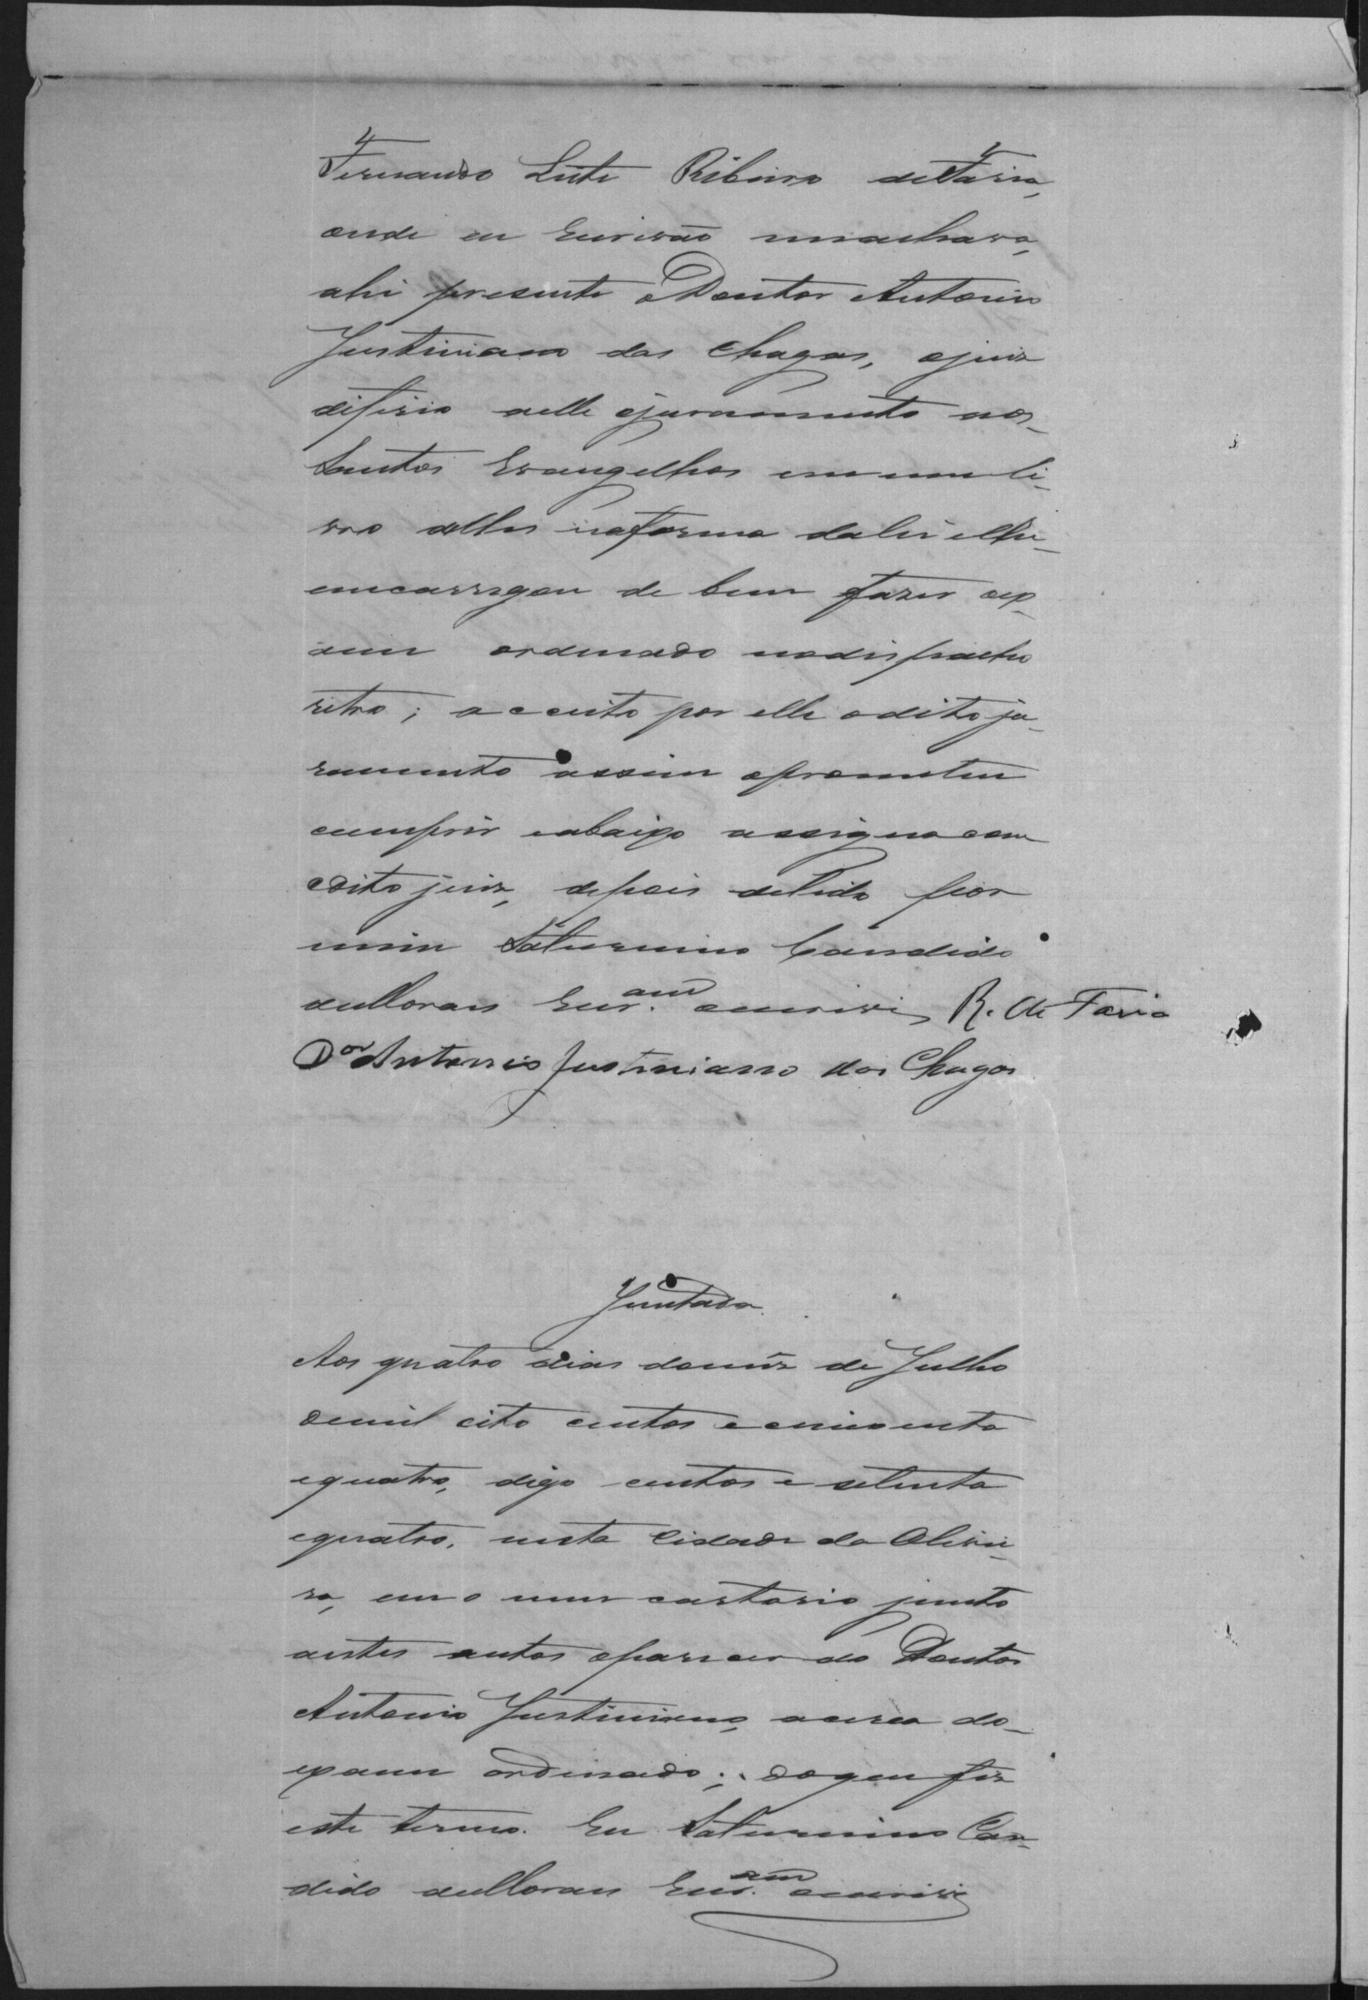 Fernando Leite Ribeiro de Faria,
onde eu Escrivão me achava,
ahi presente o Doutor Antonio
Justiniano das Chagas, o juiz
diferio a elle o juramento aos
Santos Evangelhos em um li-
vro delles na forma da lei e lhe
encarregou de bem fazer o ex-
ame ordenado no dispacho
retro; acceito por elle o dito ju-
ramento assim o prometeu
cumprir e abaixo assigna com
o dito juiz, depois de lido por
mim Saturnino Candido
de Moraes Escr.am o escrivi, R. de Faria
Dor Antonio Justiniano das Chagas
Juntada
Aos quatro dias do mêz de Julho
de mil oito centos e cincoenta
e quatro, digo centos e setenta
e quatro, nesta Cidade da Olivei-
ra, em o meu cartorio junto
a estes autos o parecer do Doutor
Antonio Justiniano, acerca do
exame ordenado; do que fiz
este termo. Eu Saturnino Can-
dido de Moraes Escr.am o escrivi